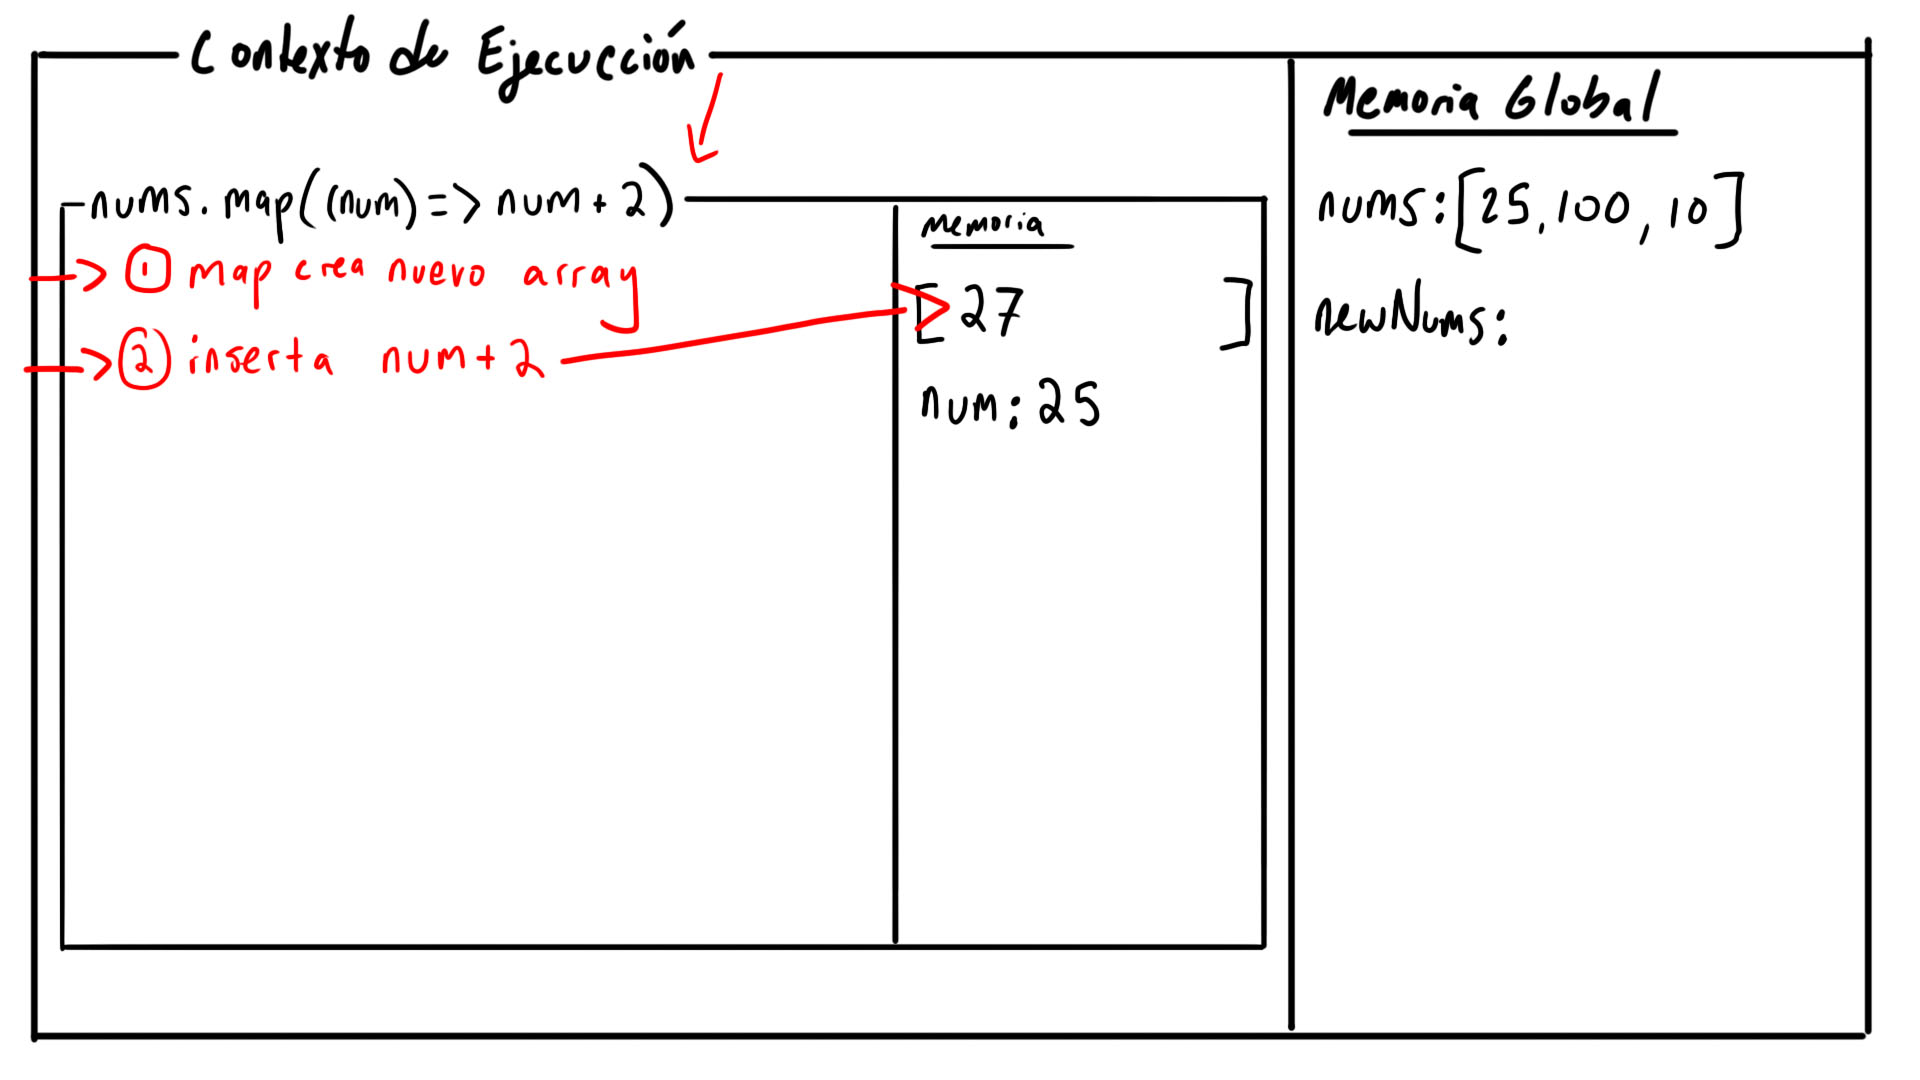 Contexto de Ejecucción
nums.map((num)=> num+2)
① map crea nuevo array
② inserta num+2
Memoria
[27 ]
num: 25
Memoria Global
nums: [25, 100, 10]
newNums: